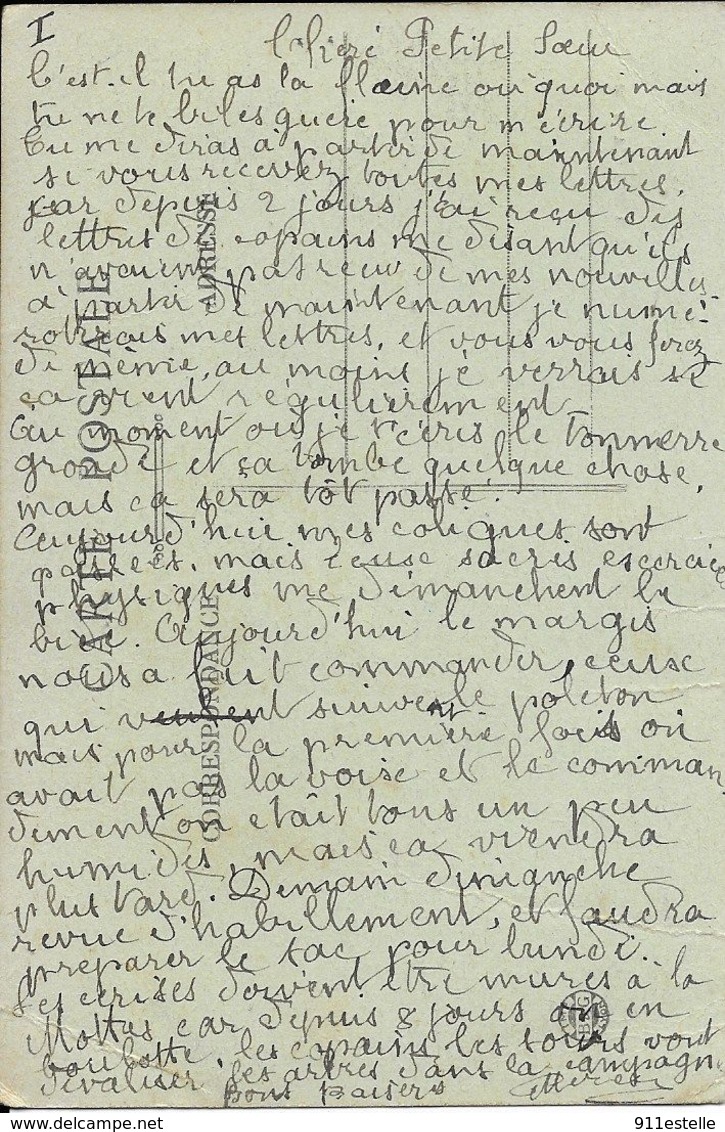 I
Chère Petite Sœur
C'est-il tu as la flaine ou quoi mais
tu ne te biles guère pour m'écrire.
Tu me diras à partir de maintenant
si vous recevrez toutes mes lettres,
car depuis 2 jours j'ai reçu des
lettres de copains me disant qu'ils
n'avaient pas reçu de mes nouvelles
à partir de maintenant je numé-
roterais mes lettres, et vous vous ferez
de même, au moins je verrais si
ça vient régulièrement
Au moment ou je t'écris le tonnerre
gronde et sa tombe quelque chose,
mais ça sera tôt passé.
Aujourd'hui mes coliques sont
passées, mais ceuse sacrés exercices
physiques me démanchent la
bile. Aujourd'hui le margis
nous a fait commander, ceuse
qui veulent suivre le poleton
mais pour la première fois on
avait pas la voise et le comman
dement on était tous un peu
humides, mais ça viendra
plus tard. Demain dimanche
revue d'habillement, et faudra
préparer le sac pour lundi.
Les cerises doivent être mures à la
Mottes car depuis 8 jours on en
boulotte, les copains les tours vont
dévaliser les arbres dans la campagne
bons baisers
CARTE POSTALE
CORRESPONDANCE
ADRESSE
911estelle